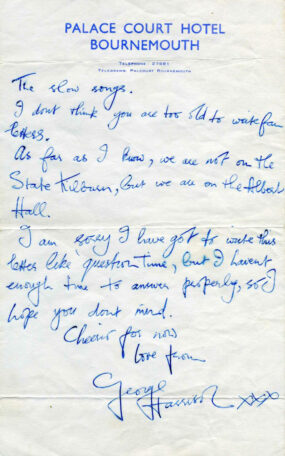 PALACE COURT HOTEL
BOURNEMOUTH
TELEPHONE : 23681
TELEGRAMS: PALCOURT BOURNEMOUTH
The slow songs.
I dont think you are too old to write fan
letters.
As far as I know, we are not on the
State Kilburn, but we are on the Albert
Hall.
I am sorry I have got to write this
letter like question time, but I havent
enough time to answer properly, so I
hope you dont mind.
Cheerio for now
love from
George
Harrison xxx